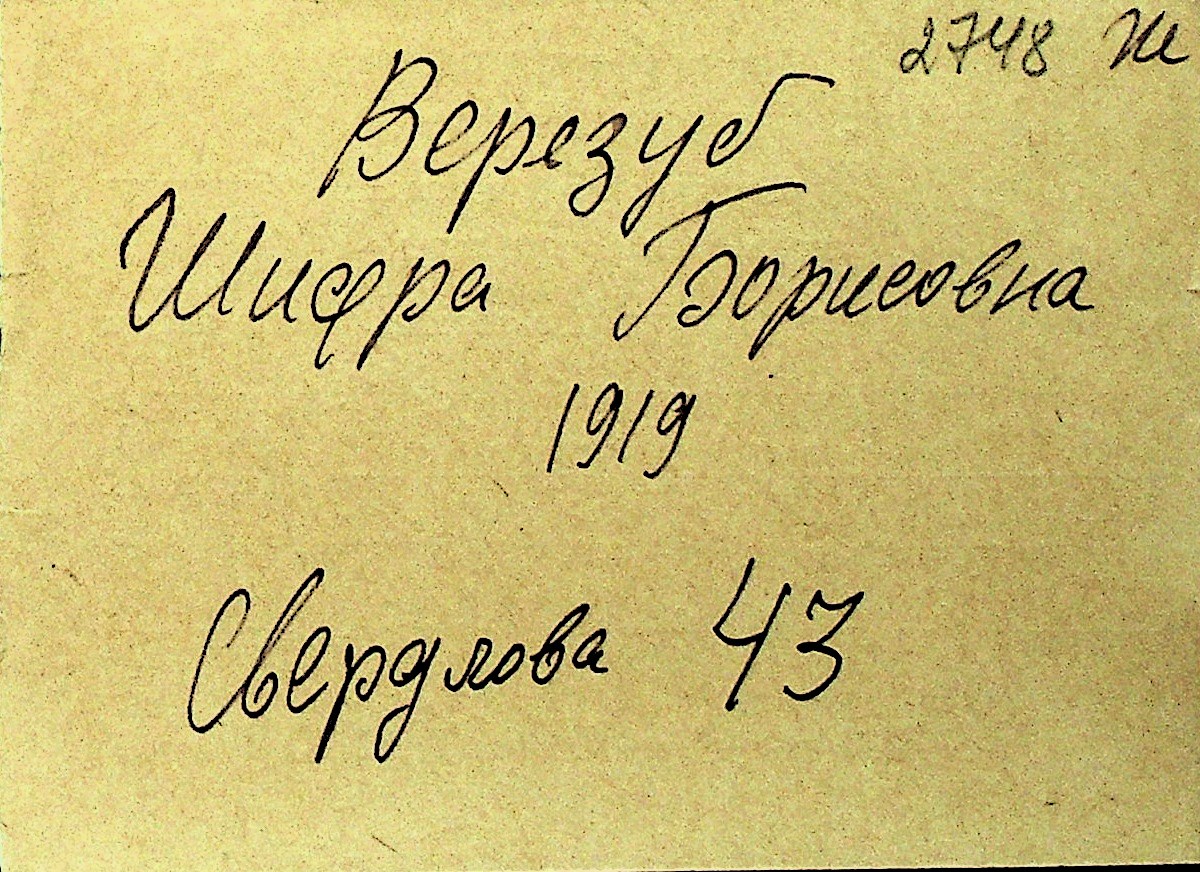 2748 Ж
Верезуб
Шифра Борисовна
1919
Свердлова 43